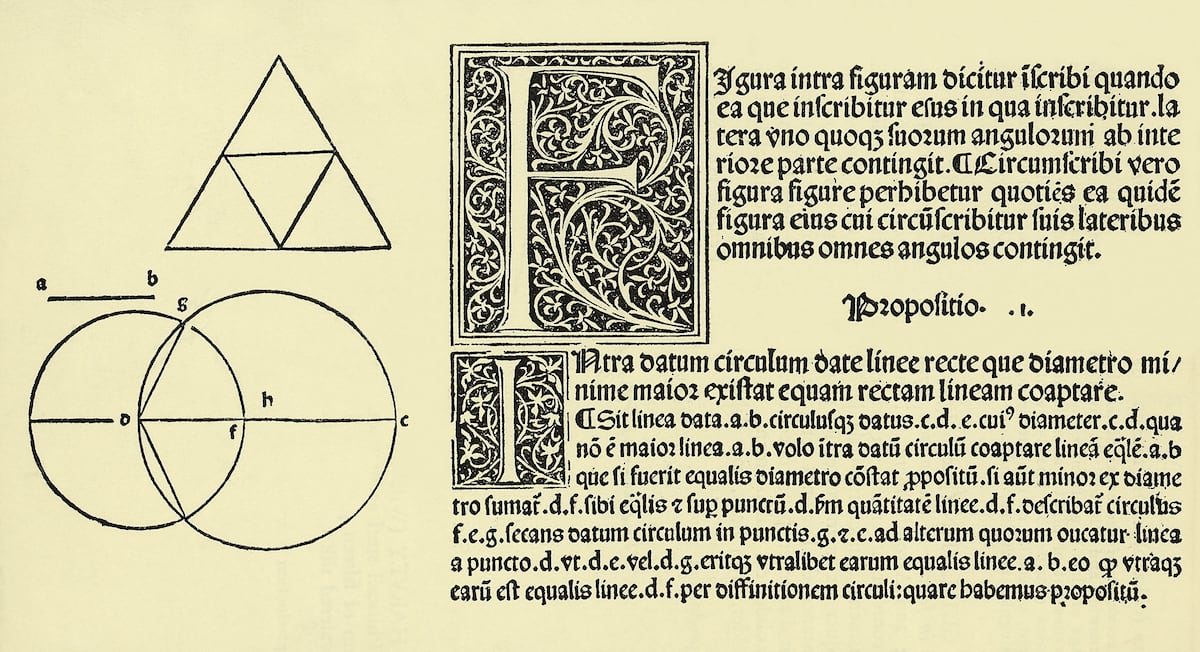 a b
g
h
d f c
FJgura intra figuram dicitur īscribi quando
ea que inscribitur eius in qua inscribitur. la
tera vno quoqꝫ suorum angulorum ab inte
riore parte contingit. ¶Circumscribi vero
figura figure perhibetur quotiēs ea quidē
figura eius cui circūscribitur suis lateribus
omnibus omnes angulos contingit.
Propositio. .1.
INtra datum circulum date linee recte que diametro mi/
nime maior existat equam rectam lineam coaptare.
¶Sit linea data.a.b.circulusqꝫ datus.c.d.e.cuiꝰ diameter.c.d.qua
nō ē maior linea.a.b.volo ītra datū circulū coaptare lineā eq̄lē.a.b
que si fuerit equalis diametro cōstat ꝓpositū.si aūt minor ex diame
tro sumat᷑.d.f.sibi eq̄lis ⁊ suꝑ punctū.d.ẜm quātitatē linee.d.f.describat᷑ circulus
f.e.g.secans datum circulum in punctis.g.⁊.e.ad alterum quorum ducatur linea
a puncto.d.vt.d.e.vel.d.g.eritqꝫ vtralibet earum equalis linee.a.b.eo ꝙ vtraqꝫ
earū est equalis linee.d.f.per diffinitionem circuli:quare habemus propositū.